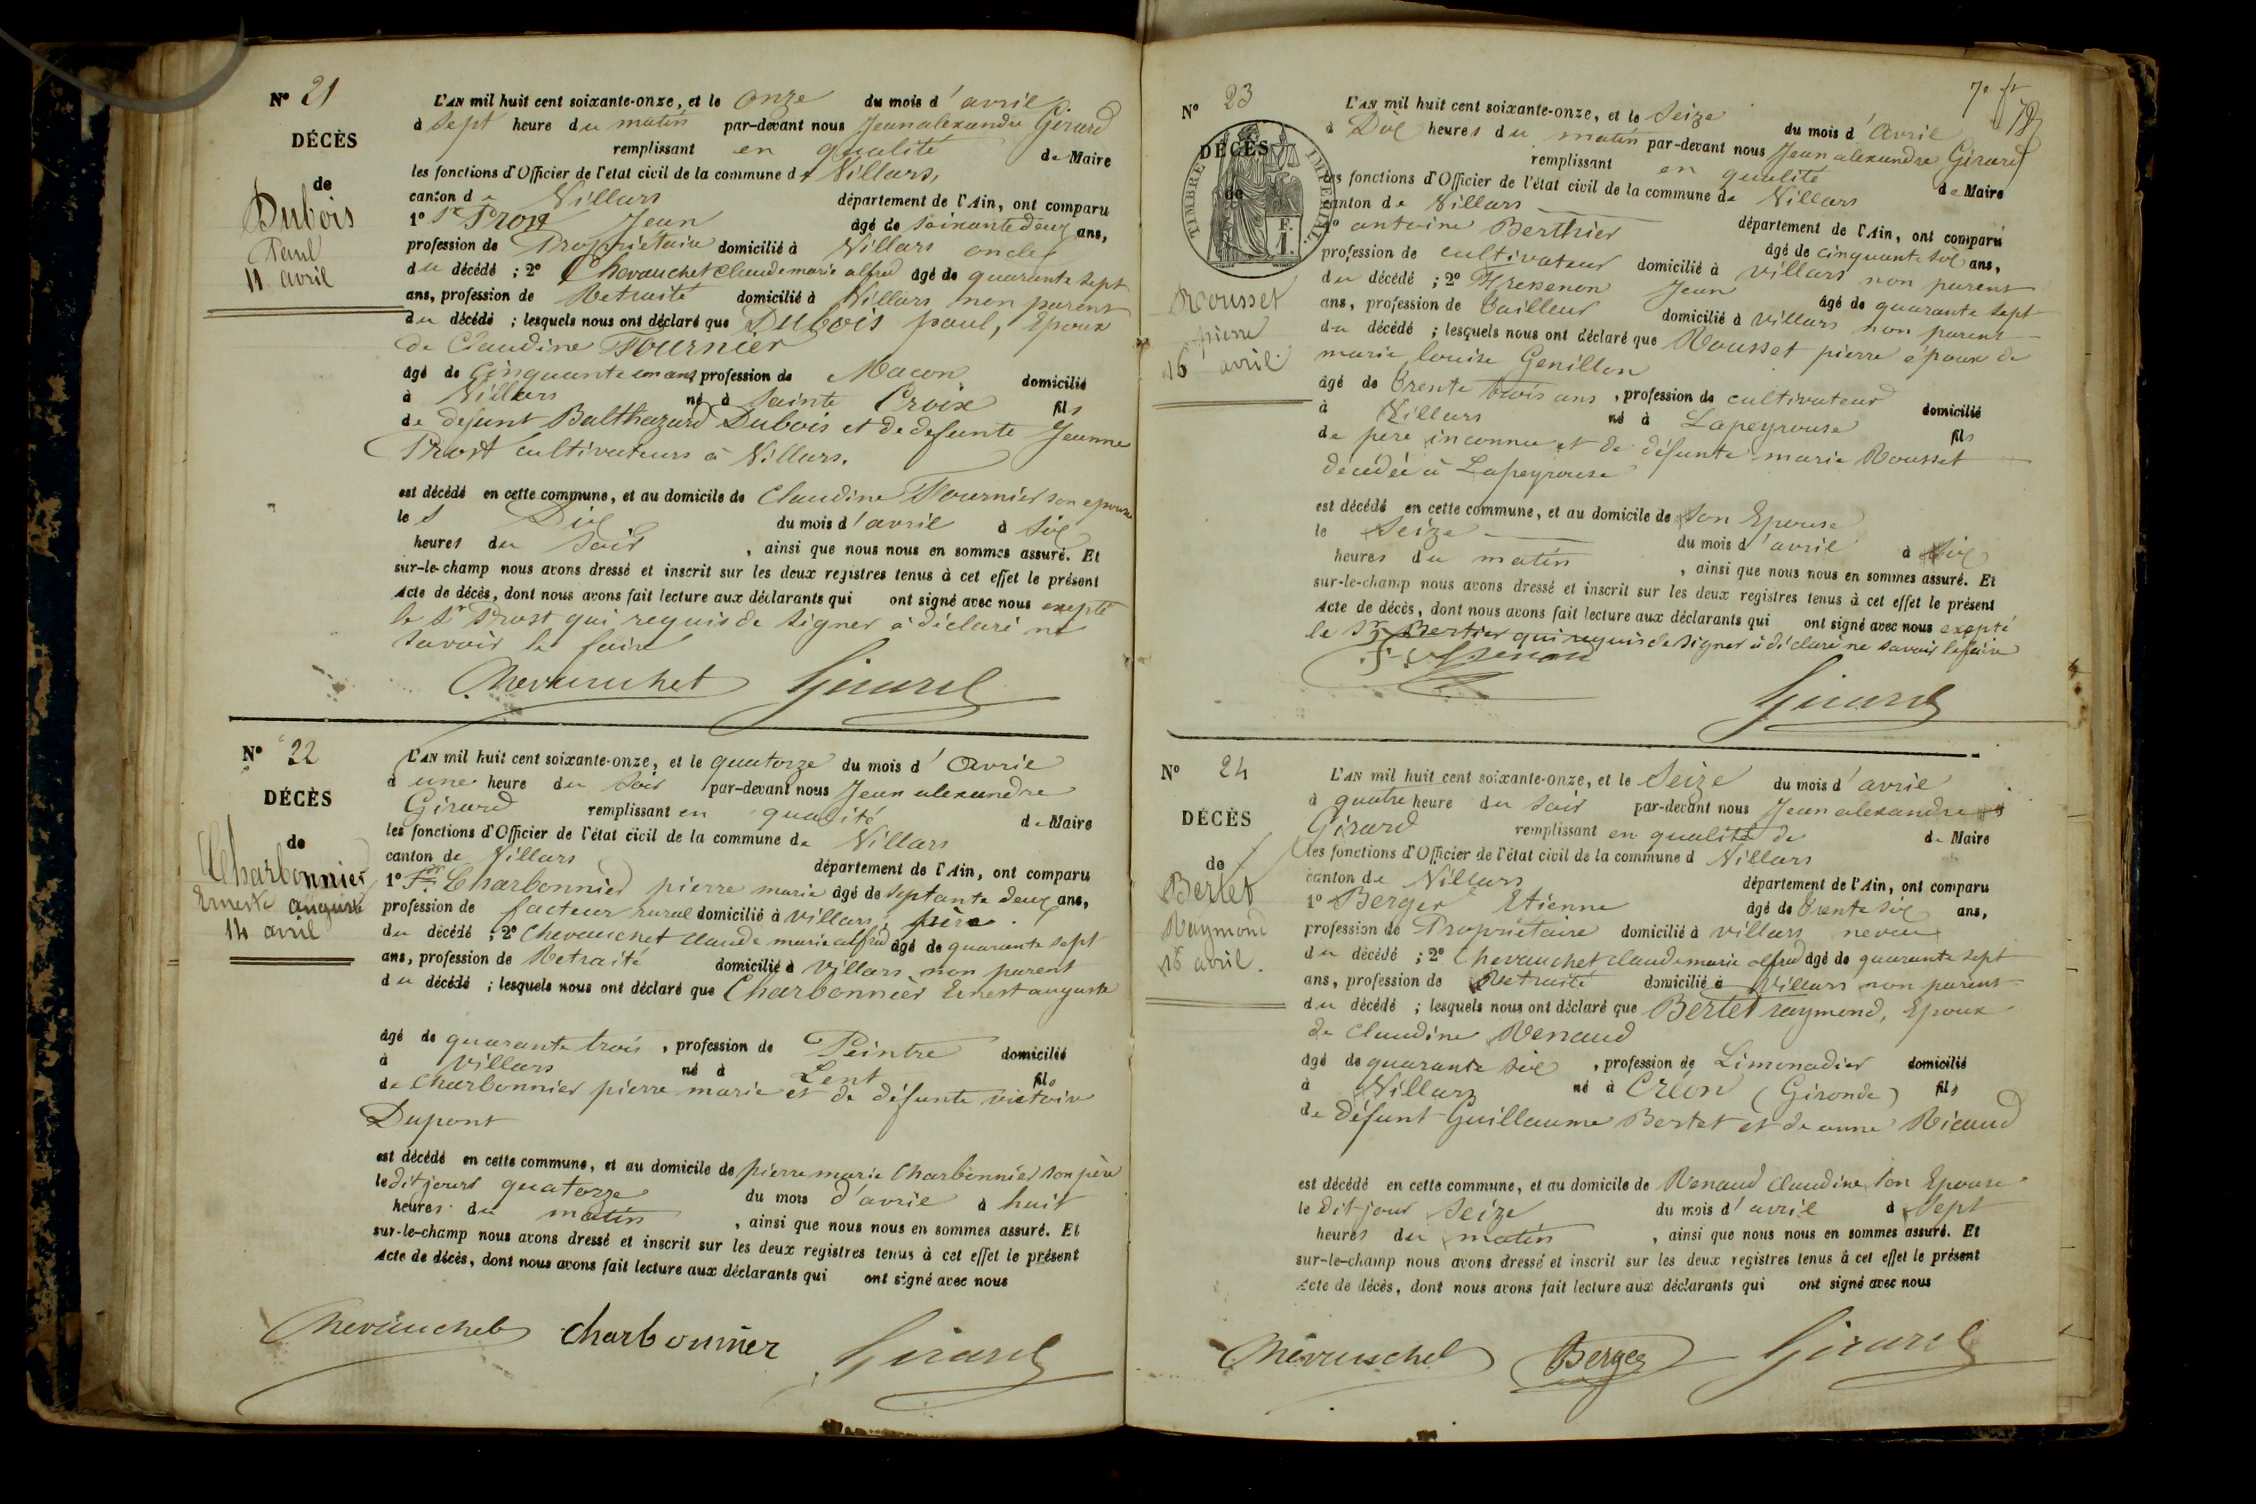 N° 21
DÉCÈS
de
Dubois
Paul
11 avril
L'AN mil huit cent soixante-onze, et le onze du mois d'avril
à sept heure du matin par-devant nous Jean alexandre Girard
remplissant en qualité de Maire
les fonctions d'Officier de l'état civil de la commune de Villars,
canton de Villars département de l'Ain, ont comparu
1° Sr Prost Jean âgé de soixante deux ans,
profession de Propriétaire domicilié à Villars oncle
du décédé ; 2° Chevauchet Claude marie alfred âgé de quarante sept
ans, profession de Retraité domicilié à Villars non parent
du décédé ; lesquels nous ont déclaré que Dubois paul, Epoux
de Claudine Fournier
âgé de Cinquante un ans, profession de Macon domicilié
à Villars né à Sainte Croix fils
de défunt Balthazard Dubois et de defunte Jeanne
Prost cultivateurs à Villars.
est décédé en cette commune, et au domicile de Claudine Fournier son epouse
le Dix du mois d'avril à Six
heures du Soir, ainsi que nous nous en sommes assuré. Et
sur-le-champ nous avons dressé et inscrit sur les deux registres tenus à cet effet le présent
Acte de décès, dont nous avons fait lecture aux déclarants qui ont signé avec nous exepté
le Sr Prost qui requis de signer à déclaré ne
savoir le faire
Chevauchet Girard
N° 22
DÉCÈS
de
Charbonnier
Ernest auguste
14 avril
L'AN mil huit cent soixante-onze, et le quatorze du mois d'Avril
à une heure du Soir par-devant nous Jean alexandre
Girard remplissant en qualité de Maire
les fonctions d'Officier de l'état civil de la commune de Villars
canton de Villars département de l'Ain, ont comparu
1° Sr Charbonnier pierre marie âgé de septante deux ans,
profession de facteur rural domicilié à Villars, père
du décédé ; 2° Chevauchet claude marie alfred âgé de quarante sept
ans, profession de Retraité domicilié à Villars non parent
du décédé ; lesquels nous ont déclaré que Charbonnier Ernest auguste
âgé de quarante trois, profession de Peintre domicilié
à Villars né à Lent fils
de Charbonnier pierre marie et de défunte victoire
Dupont
est décédé en cette commune, et au domicile de pierre marie Charbonnier son père
le dit jour quatorze du mois d'avril à huit
heures du matin, ainsi que nous nous en sommes assuré. Et
sur-le-champ nous avons dressé et inscrit sur les deux registres tenus à cet effet le présent
Acte de décès, dont nous avons fait lecture aux déclarants qui ont signé avec nous
Chevauchet charbonnier Girard
N° 23
DÉCÈS
de
TIMBRE IMPÉRIAL
Rousset
pierre
16 avril.
L'AN mil huit cent soixante-onze, et le Seize du mois d'Avril
à Dix heures du matin par-devant nous Jean alexandre Girard
remplissant en qualité de Maire
les fonctions d'Officier de l'état civil de la commune de Villars
canton de Villars département de l'Ain, ont comparu
1° antoine Berthier âgé de cinquante six ans,
profession de cultivateur domicilié à villars non parent
du décédé ; 2° Jean âgé de quarante sept
ans, profession de tailleur domicilié à villars non parent
du décédé ; lesquels nous ont déclaré que Rousset pierre époux de
marie louise Genillon
âgé de trente trois ans, profession de cultivateur domicilié
à Villars né à Lapeyrouse fils
de père inconnu et de défunte marie Rousset
décédée à Lapeyrouse
est décédé en cette commune, et au domicile de Son Epouse
le Seize du mois d'avril à Six
heures du matin, ainsi que nous nous en sommes assuré. Et
sur-le-champ nous avons dressé et inscrit sur les deux registres tenus à cet effet le présent
Acte de décès, dont nous avons fait lecture aux déclarants qui ont signé avec nous exepté
le Sr Bertier qui requis de signer à déclaré ne savoir le faire
Girard
N° 24
DÉCÈS
de
Bertet
Raymond
16 avril.
L'AN mil huit cent soixante-onze, et le Seize du mois d'avril
à quatre heure du soir par-devant nous Jean alexandre
Girard remplissant en qualité de de Maire
les fonctions d'Officier de l'état civil de la commune d Villars
canton de Villars département de l'Ain, ont comparu
1° Berger Etienne âgé de trente six ans,
profession de Propriétaire domicilié à villars neveu
du décédé ; 2° Chevauchet claude marie alfred âgé de quarante sept
ans, profession de Retraité domicilié à Villars non parent
du décédé ; lesquels nous ont déclaré que Bertet raymond, Epoux
de Claudine Renaud
âgé de quarante six, profession de Limonadier domicilié
à Villars né à Créon (Gironde) fils
de défunt Guillaume Bertet et de anne Ricaud
est décédé en cette commune, et au domicile de Renaud Claudine, son Epouse
le dit jour Seize du mois d'avril à Sept
heures du matin, ainsi que nous nous en sommes assuré. Et
sur-le-champ nous avons dressé et inscrit sur les deux registres tenus à cet effet le présent
Acte de décès, dont nous avons fait lecture aux déclarants qui ont signé avec nous
Chevauchet Berger Girard